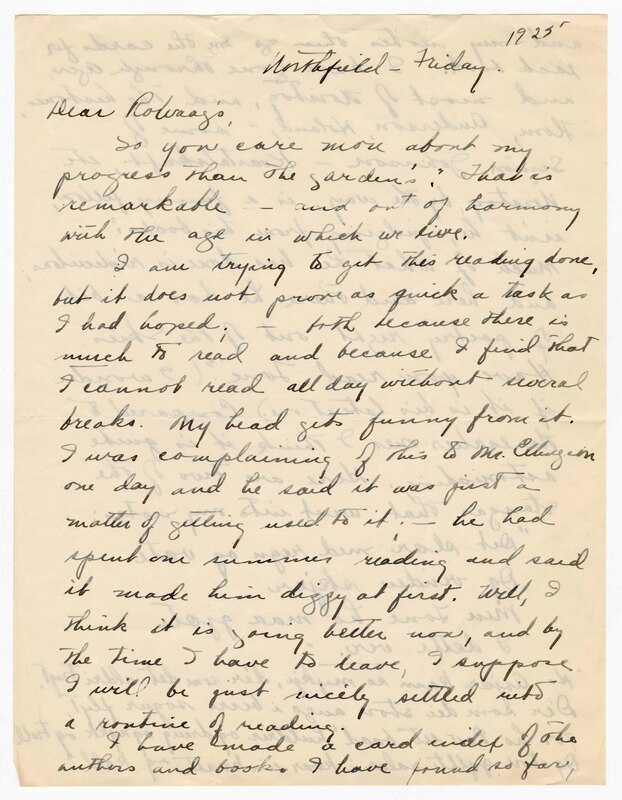 1925
Northfield - Friday.
Dear Rolvaag's,
So you care more about my
progress than the garden's? That is
remarkable - and out of harmony
with the age in which we live.
I am trying to get this reading done,
but it does not prove as quick a task as
I had hoped; - both because there is
much to read and because I find that
I cannot read all day without several
breaks. My head gets funny from it.
I was complaining of this to Mr. Ellingson
one day and he said it was just a
matter of getting used to it. - he had
spent one summer reading and said
it made him dizzy at first. Well, I
think it is going better now, and by
the time I have to leave, I suppose
I will be just nicely settled into
a routine of reading.
I have made a card index of the
authors and books I have found so far,